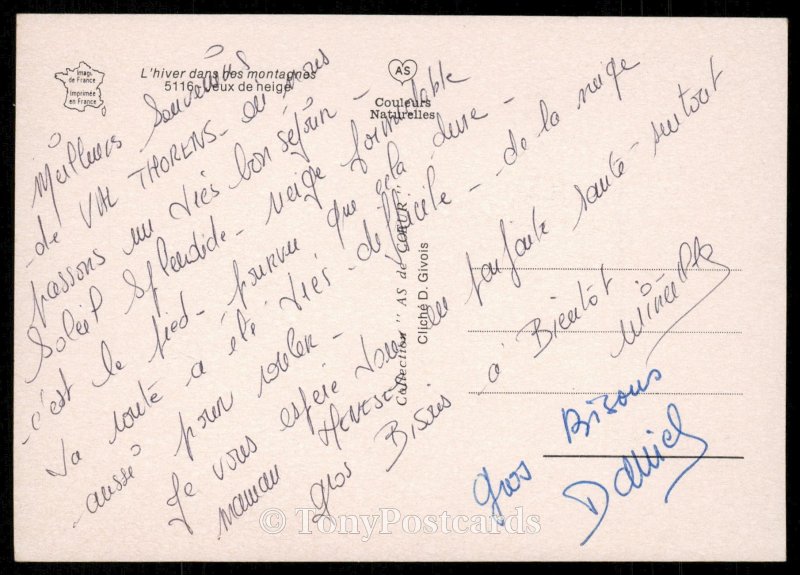 Image
de France
Imprimée
en France
L'hiver dans nos montagnes
5116 - Jeux de neige
AS
Couleurs
Naturelles
Collection " AS de CŒUR "
Cliché D. Givois
Meilleurs Souvenirs
de VAL THORENS - où nous
passons un très bon séjour -
Soleil Splendide - neige formidable
c'est le pied - pourvu que cela dure -
La route a été très difficile - de la neige
aussi pour rouler -
Je vous espère tous en parfaite santé - surtout
maman
gros Bisous à Bientôt
gros Bisous
Daniel
© TonyPostcards